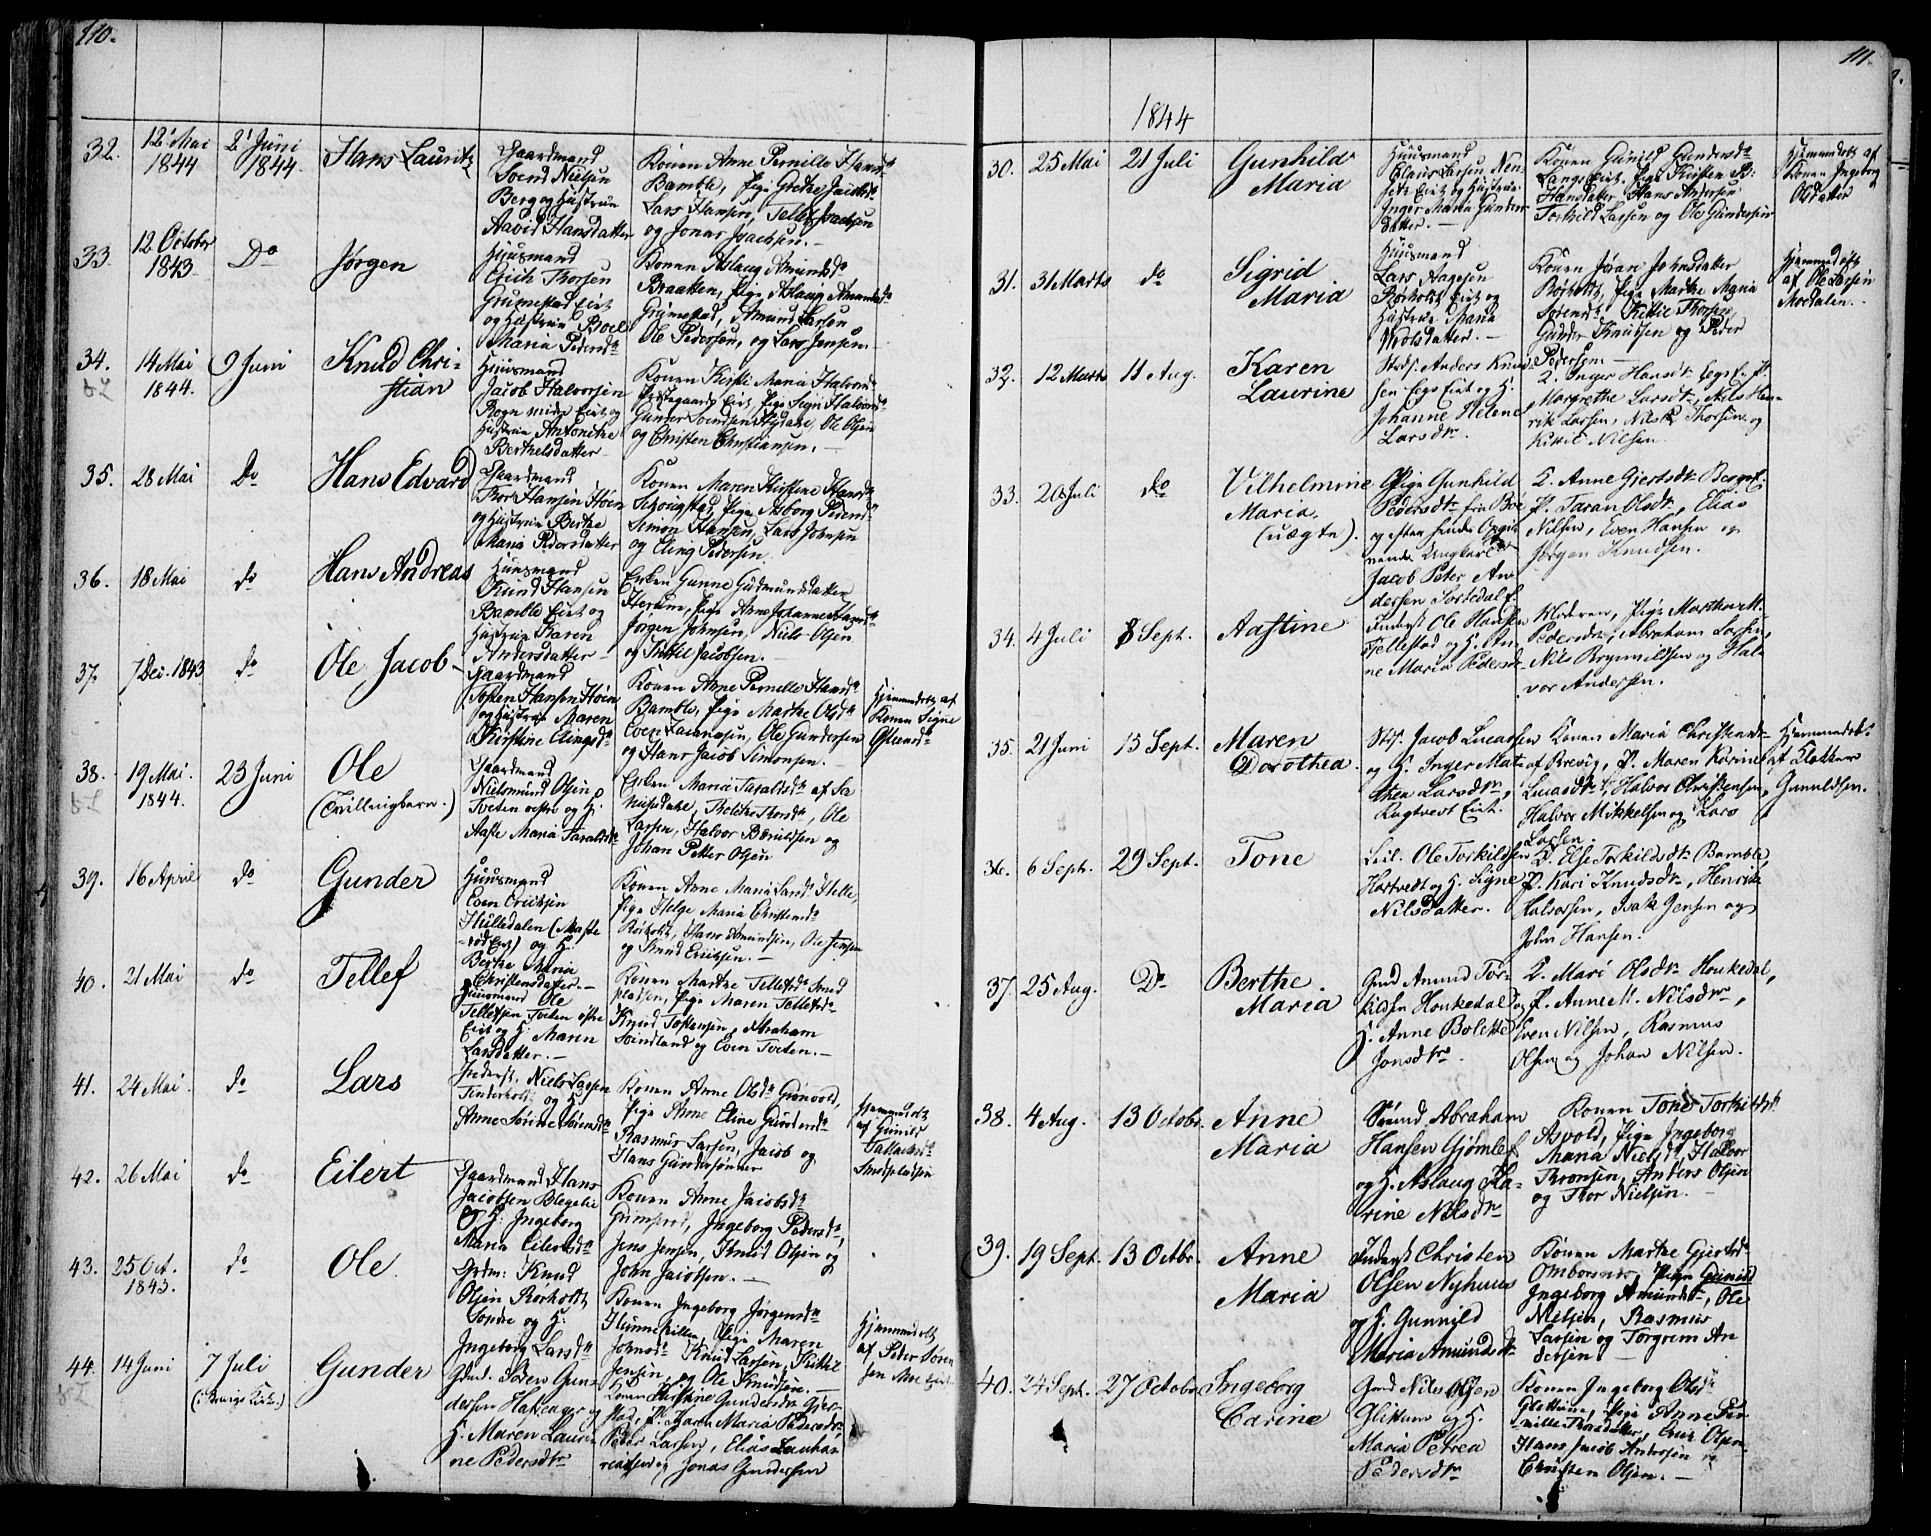 110.
32.
12' Mai
1844
2' Juni
1844.
Hans Lauritz
Gaardmand
Svend Nielsen
Berg og Hustrue
Aavid Hansdatter
Konen Anne Pernille Hansd.
Bamble, Pige Grethe Jacobsd.
Lars Hansen, Tellef Isachsen
og Jonas Isachsen.
33.
12 October
1843
Do
Jørgen
Huusmand
Erich Thorsen
Grumestad Eiet
og Hustrue Boel
Maria Pedersd.
Konen Aslaug Amundsd.
Braatten, Pige Aslaug Amundsd.
Grumestad, Amund Larsen
Ole Pedersen, og Lars Jensen.
34.
14 Mai
1844.
9 Juni
Knud Chri-
stian
Huusmand
Jacob Halvorsen
Rogn Eiet og
Hustrue Antonethe
Berthelsdatter
Konen Kirsti Maria Halvorsd.
Eiet, Pige Sigri Halvorsd.
Gunder Svendsen Ole Olsen
og Christen Christiansen.
35.
28 Mai
Do
Hans Edvard
Gaardmand
Thor Hansen Høien
og Hustrue Berthe
Maria Pedersdatter
Konen Maren Kirstine Hansd.
Skougstad, Pige Asborg Pedersd.
Simon Hansen, Lars Johnsen
og Eling Pedersen.
36.
18 Mai
do
Hans Andreas
Huusmand
Knud Hansen
Bamble Eiet og
Hustrue Karen
Andersdatter
Enken Gunne Gudmundsdatter
Herum, Pige Anne Johanne Hansd.
Jørgen Johnsen, Niels Olsen
og Kittil Jacobsen.
37.
7 Dec. 1843
do
Ole Jacob
Gaardmand
Hansen Høien
og Hustrue Maren
Kirstine Elingsd.
Konen Anne Pernille Hansd.
Bamble, Pige Marthe Olsd.
Even Zachariasen, Ole Gundersen
og Hans Jacob Simonsen.
Hjemmedøbt af
Konen Signe
38.
19 Mai.
1844.
23 Juni
Ole
(Tvillingbarn.)
Gaardmand
Nielsmund Olsen
Tveten vestre og H.
Aaste Maria Taraldsd.
Enken Maria Taraldsd. af
Thorsd., Ole
Larsen, Halvor Bærulfsen og
Johan Petter Olsen
39.
16 April
do
Gunder
Huusmand
Even Erichsen
Hilledalen
Eiet) og H.
Berthe Maria
Christensdatter.
Konen Anne Maria Larsd. Helle,
Pige Helge Maria Christensd.
Rørholt, Hans Amundsen, Ole Jensen
og Knud Erichsen.
40.
21 Mai
do
Tellef
Huusmand Ole
Tellefsen Tveten østre
Eiet og H. Maren
Larsdatter.
Konen Marthe Tellefsd. Smed
pladsen, Pige Maren Tellefsd.
Knud Tostensen, Abraham
Svindland og Even Tveten.
41.
24 Mai
do
Lars
Inderst. Niels Larsen
Tinderholt og H.
Anne Sørine Sørensd.
Konen Anne Olsd. Grønvold,
Pige Anne Eline Gundersd.
Rasmus Larsen, Jacob og
Hans Gundersønner
Hjemmedøbt
af Gunild
Smedpladsen
42.
26 Mai
do
Eilert
Gaardmand Hans
Jacobsen Blegelie
og H. Ingeborg
Maria Eilertsd.
Konen Anne Jacobsd.
Grimsrød, Ingeborg Pedersd.,
Jens Jensen, Knud Olsen og
John Jacobsen.
43.
25 Oct.
1843.
do
Ole
Grdm. Knud
Olsen Rørholt
Søndre og H.
Ingeborg Larsd.
Konen Ingeborg Jørgensd.
Hunnekillen, Pige Maren
Johnsd. Knud Larsen, Kittil
Jensen, og Ole Knudsen.
Hjemmedøbt
af Peder Søren
sen
44.
14 Juni
7 Juli
(i Brevigs Kirke.)
Gunder
Gmd. Søren Gun-
dersen Hafsager og
H. Maren Lauri-
ne Pedersdtr.
Konen Kirstine Gundersdtr. Gjer-
stad, P. Karen Maria Pedersdtr.
Peder Larsen, Elias Zacha-
riassen og Jonas Gundersen
111.
1844
30.
25 Mai
21 Juli
Gunhild
Maria
Huusmand
Claus Larsen
Eiet og Hustrue
Inger Maria Gunders-
datter.
Konen Gunild Gundersd.
Langs Eiet, Pige Kirsten P.
Hansdatter Hans Andersen
Torkild Larsen og Ole Gundersen
Hjemmedøbt af
Konen Ingeborg
Olsdatter
31.
31 Marts
do
Sigrid
Maria
Huusmand
Lars Aagesen
Rørholt Eiet og
Hustrue Maria
Nielsdatter.
Konen Jøran Johnsdatter
Rørholt, Pige Marthe Maria
Sørensd. Kittil Thorsen
Gunder Knudsen og Peder
Pedersen
Hjemmedøbt
af Ole Larsen
Mordalen.
32.
12 Marts
11 Aug.
Karen
Laurine
Strds. Anders Knud-
sen Eegs Eiet og H.
Johanne Helene
Larsdtr.
K. Inger Hansdt. Eegsf. P.
Margrethe Larsdt., Nils Hen-
rik Larsen, Nils Thorsen og
Kittil Nilsen.
33.
20 Juli
do
Vilhelmine
Maria.
(uægte).
Pige Gunhild
Pedersdtr fra Boe
og efter hendes Opgi-
vende Ungkarl
Jacob Peter An-
dersen Tortedal f.
K. Anne Gjertsdt. Bergsf.
P. Taran Olsdt., Elias
Nilsen, Even Hansen og
Jørgen Knudsen.
34.
4 Juli
8 Sept.
Aastine
Inderst Ole Hansen
Fjellestad og H. An-
ne Maria Pedersdt.
Moderen, Pige Marthe M.
Pedersdt., Abraham Larsen,
Nils Brynnildsen og Hal-
vor Andersen.
35.
21 Juni
15 Sept.
Maren
Dorothea.
Jacob Lucassen
og H. Inger Mat-
thea Larsdtr.
Ragtvedt Eiet.
Konen Maria Christensd.
af Brevig, P. Maren Karine
Lucasdtr., Halvor Christensen,
Halvor Mikkelsen og Lars
Larsen.
Hjemmedøbt
af Klokker
Gunuldsen.
36.
6 Sept.
29 Sept.
Tone
Leil. Ole Torkildsen
Hartvedt og H. Signe
Nilsdatter.
K. Else Torkildsdtr. Bamble,
P. Kari Knudsdtr., Henrik
Halvorsen, Isak Jensen og
John Hansen.
37.
25 Aug.
Do
Berthe
Maria
Gmd Amund Tor-
kildsen Houkedal og
H. Anne Bolette
Jonsdtr.
K. Mari Olsdtr. Houkedal,
P. Anne M. Nilsdtr.,
Even Nilsen, Rasmus
Olsen og Johan Nilsen.
38.
4 Aug.
13 Octobr.
Anne
Maria
Abraham
Hansen Gjømle f
og H. Aslaug Ka-
rine Nilsdtr
Konen Tone Torkildsd.
Asvold, Pige Ingeborg
Maria Nielsd., Halvor
Thronsen, Anders Olsen
og Thor Nielsen.
39.
19 Sept.
13 Octbr.
Anne
Maria
Inderst Christen
Olsen Nyhuus
og H. Gunnild
Maria Amundsdt.
Konen Marthe Gjertsd.
Omborsnes, Pige Gunild
Ingeborg Amundsd., Ole
Nielsen, Rasmus
Larsen og Torgrem An
dersen.
40.
24 Sept.
27 Octobr
Ingeborg
Carine
Gmd Nils Olsen
Glittum og H.
Maria Petrea
Pedersdtr.
Konen Ingeborg Olsd.
Glittum, Pige Anne Per-
nille Knudsdatter, Even Olsen
Hans Jacob Andersen og
Christen Olsen.